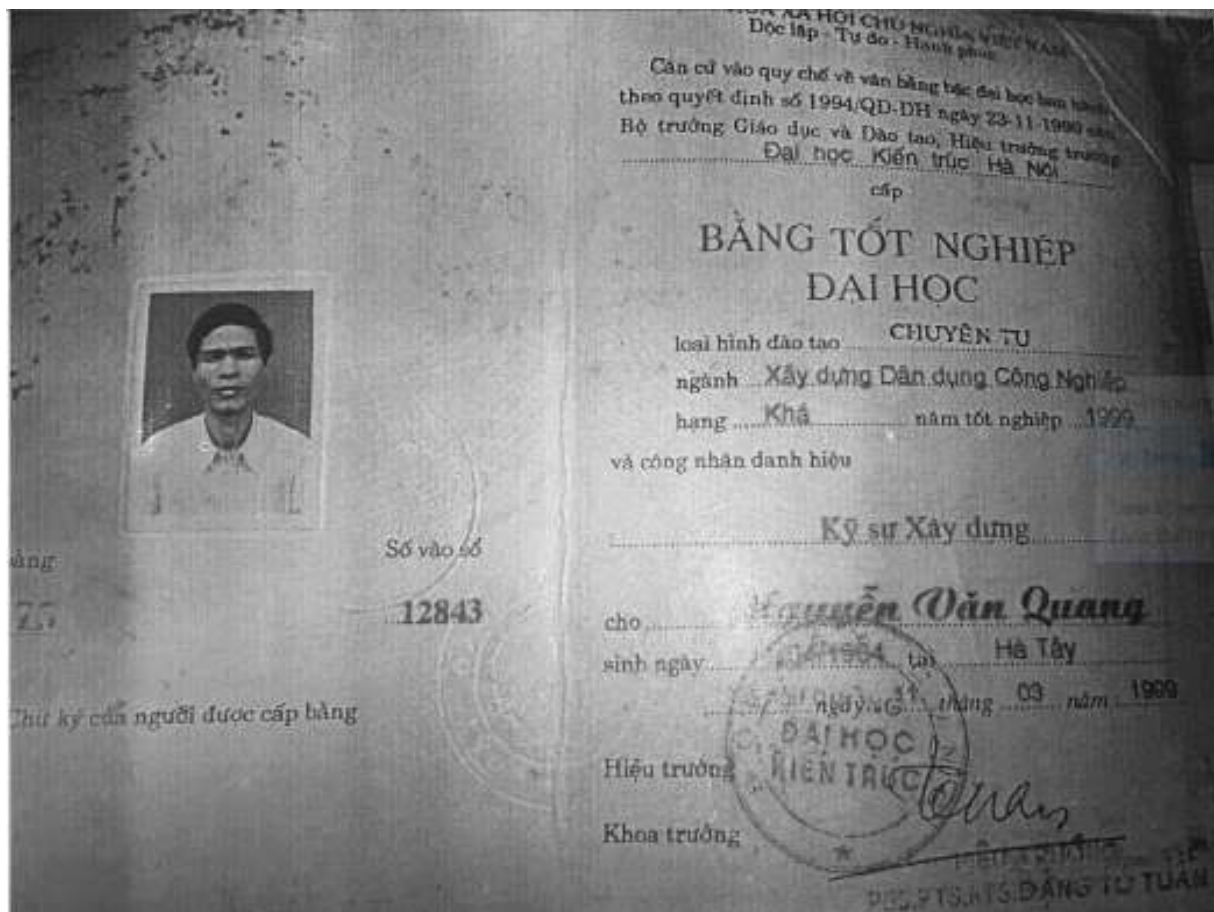 HÒA XÃ HỘI CHỦ NGHĨA VIỆT NAM
Độc lập - Tự do - Hạnh phúc
Căn cứ vào quy chế về văn bằng bậc đại học ban hành
theo quyết định số 1994/QD-DH ngày 23-11-1990 của
Bộ trưởng Giáo dục và Đào tạo, Hiệu trưởng trường
Đại học Kiến trúc Hà Nội
cấp
BẰNG TỐT NGHIỆP
ĐẠI HỌC
loại hình đào tạo CHUYÊN TU
ngành Xây dựng Dân dụng Công Nghiệp
hạng Khá năm tốt nghiệp 1999
và công nhận danh hiệu
Kỹ sư Xây dựng
cho Nguyễn Văn Quang
sinh ngày tại Hà Tây
ngày tháng 03 năm 1999
Hiệu trưởng
Khoa trưởng
ĐẠI HỌC
KIẾN TRÚC
ĐẶNG TỐ TUẤN
bằng
Số vào sổ
12843
Chữ ký của người được cấp bằng